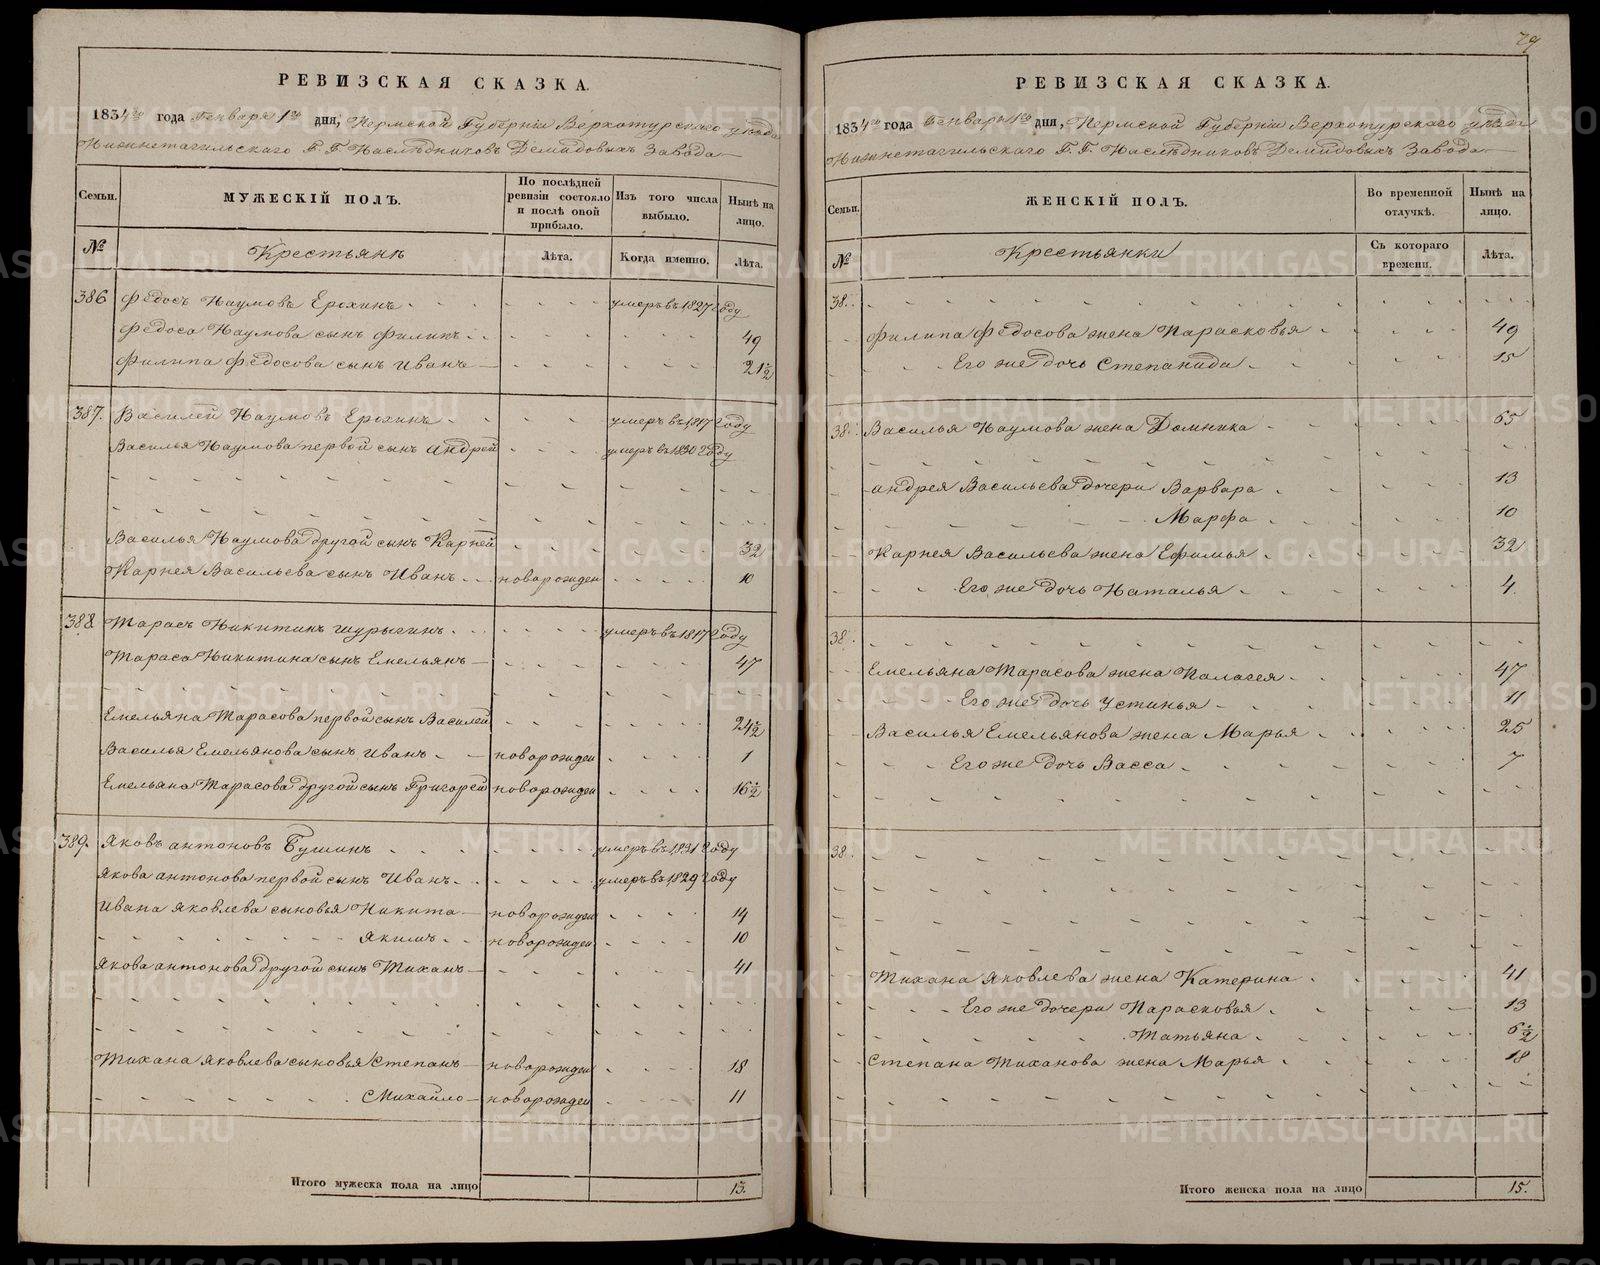 РЕВИЗСКАЯ СКАЗКА.
1834го года Генваря 1го дня, Пермской Губерніи Верхотурскаго уѣзда
Нижнетагильскаго Г. Г. Наслѣдниковъ Демидовыхъ Завода
Семьи.
МУЖЕСКІЙ ПОЛЪ.
По послѣдней ревизіи состояло и послѣ оной прибыло.
Изъ того числа выбыло.
Нынѣ на лицо.
№
Крестьянъ
Лѣта.
Когда именно.
Лѣта.
386 Федосъ Наумовъ Ерохинъ умеръ въ 1827 году
Федоса Наумова сынъ Филипъ 49
Филипа Федосова сынъ Иванъ 21½
387. Василей Наумовъ Ерохинъ умеръ въ 1817 году
Василья Наумова первой сынъ Андрей умеръ въ 1830 году
Василья Наумова другой сынъ Карней 32
Карнея Васильева сынъ Иванъ новорожден 10
388. Тарасъ Никитинъ Шурыгинъ умеръ въ 1817 году
Тараса Никитина сынъ Емельянъ 47
Емельяна Тарасова первой сынъ Василей 24½
Василья Емельянова сынъ Иванъ новорожден 1
Емельяна Тарасова другой сынъ Григорей новорожден 16½
389. Яковъ Антоновъ Бушинъ умеръ въ 1831 году
Якова Антонова первой сынъ Иванъ умеръ въ 1829 году
Ивана Яковлева сыновья Никита новорожден 14
Якимъ новорожден 10
Якова Антонова другой сынъ Тиханъ 41
Тихана Яковлева сыновья Степанъ новорожден 18
Михайло новорожден 11
Итого мужеска пола на лицо 13.
79
РЕВИЗСКАЯ СКАЗКА.
1834го года Генваря 1го дня, Пермской Губерніи Верхотурскаго уѣзда
Нижнетагильскаго Г. Г. Наслѣдниковъ Демидовыхъ Завода
Семьи.
ЖЕНСКІЙ ПОЛЪ.
Во временной отлучкѣ.
Нынѣ на лицо.
№
Крестьянки
Съ котораго времени.
Лѣта.
38.
Филипа Федосова жена Парасковья 49
Его же дочь Степанида 15
38. Василья Наумова жена Домника 65
Андрея Васильева дочери Варвара 13
Марфа 10
Карнея Васильева жена Ефимья 32
Его же дочь Наталья 4.
38.
Емельяна Тарасова жена Палагея 47
Его же дочь Устинья 11
Василья Емельянова жена Марья 25
Его же дочь Васса 7
38.
Тихана Яковлева жена Катерина 41
Его же дочери Парасковья 13
Татьяна 6½
Степана Тиханова жена Марья 18
Итого женска пола на лицо 15.
METRIKI.GASO-URAL.RU